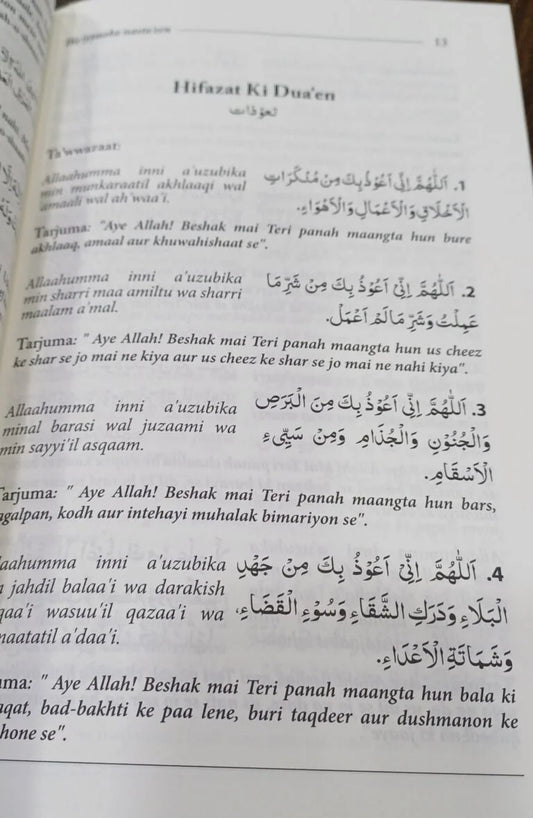 13
Hifazat Ki Dua'en
Ta'wwaraat:
Allaahumma inni a'uzubika
min munkaraatil akhlaaqi wal
amaali wal ah'waa'i.
1. اَللّٰهُمَّ اِنِّىْ اَعُوْذُ بِكَ مِنْ مُنْكَرَاتِ
الْاَخْلَاقِ وَالْاَعْمَالِ وَالْاَهْوَاءِ.
Tarjuma: "Aye Allah! Beshak mai Teri panah maangta hun bure
akhlaaq, amaal aur khuwahishaat se".
Allaahumma inni a'uzubika
min sharri maa amiltu wa sharri
maalam a'mal.
2. اَللّٰهُمَّ اِنِّىْ اَعُوْذُ بِكَ مِنْ شَرِّ مَا
عَمِلْتُ وَشَرِّ مَا لَمْ اَعْمَلْ.
Tarjuma: " Aye Allah! Beshak mai Teri panah maangta hun us cheez
ke shar se jo mai ne kiya aur us cheez ke shar se jo mai ne nahi kiya".
Allaahumma inni a'uzubika
minal barasi wal juzaami wa
min sayyi'il asqaam.
3. اَللّٰهُمَّ اِنِّىْ اَعُوْذُ بِكَ مِنَ الْبَرَصِ
وَالْجُنُوْنِ وَالْجُذَامِ وَمِنْ سَيِّىءِ
الْاَسْقَامِ.
Tarjuma: " Aye Allah! Beshak mai Teri panah maangta hun bars,
agalpan, kodh aur intehayi muhalak bimariyon se".
aahumma inni a'uzubika
jahdil balaa'i wa darakish
qaa'i wasuu'il qazaa'i wa
maatatil a'daa'i.
4. اَللّٰهُمَّ اِنِّىْ اَعُوْذُ بِكَ مِنْ جَهْدِ
الْبَلَاءِ وَدَرَكِ الشَّقَاءِ وَسُوْءِ الْقَضَاءِ،
وَشَمَاتَةِ الْاَعْدَاءِ.
ma: " Aye Allah! Beshak mai Teri panah maangta hun bala ki
aqat, bad-bakhti ke paa lene, buri taqdeer aur dushmanon ke
hone se".